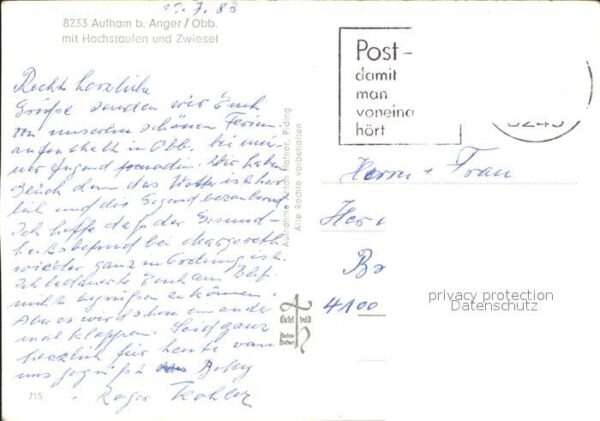 22.7.83
8233 Aufham b. Anger/Obb.
mit Hochstaufen und Zwiesel
Recht herzliche
Grüße senden wir Euch
von unserem schönen Ferien-
aufenthalt in Obb. bei
Jugend Wir haben
das Wetter ist herr-
lich und die Gegend bezaubernd
Ich hoffe daß der Gesund-
heitsbefund bei Margareth
wieder ganz in Ordnung ist.
Ich bedauerte Euch am Bhf.
nicht begrüßen zu können.
Aber es wird schon ein ander
mal klappen. Seid ganz
herzlich für heute von
uns gegrüßt Betty
Roger Kohler
715
Aufnahme Anton Hafner, Piding
Alle Rechte vorbehalten
Licht bild
Post-
damit
man
voneina
hört
8243
Herrn + Frau
Her
Br
4100
privacy protection
Datenschutz